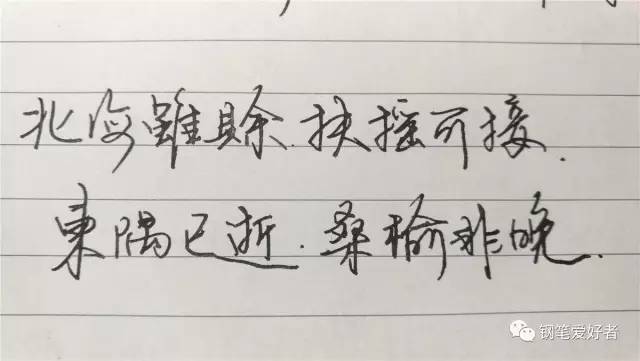 北海雖賒.扶摇可接.
東隅已逝.桑榆非晚.
钢笔爱好者